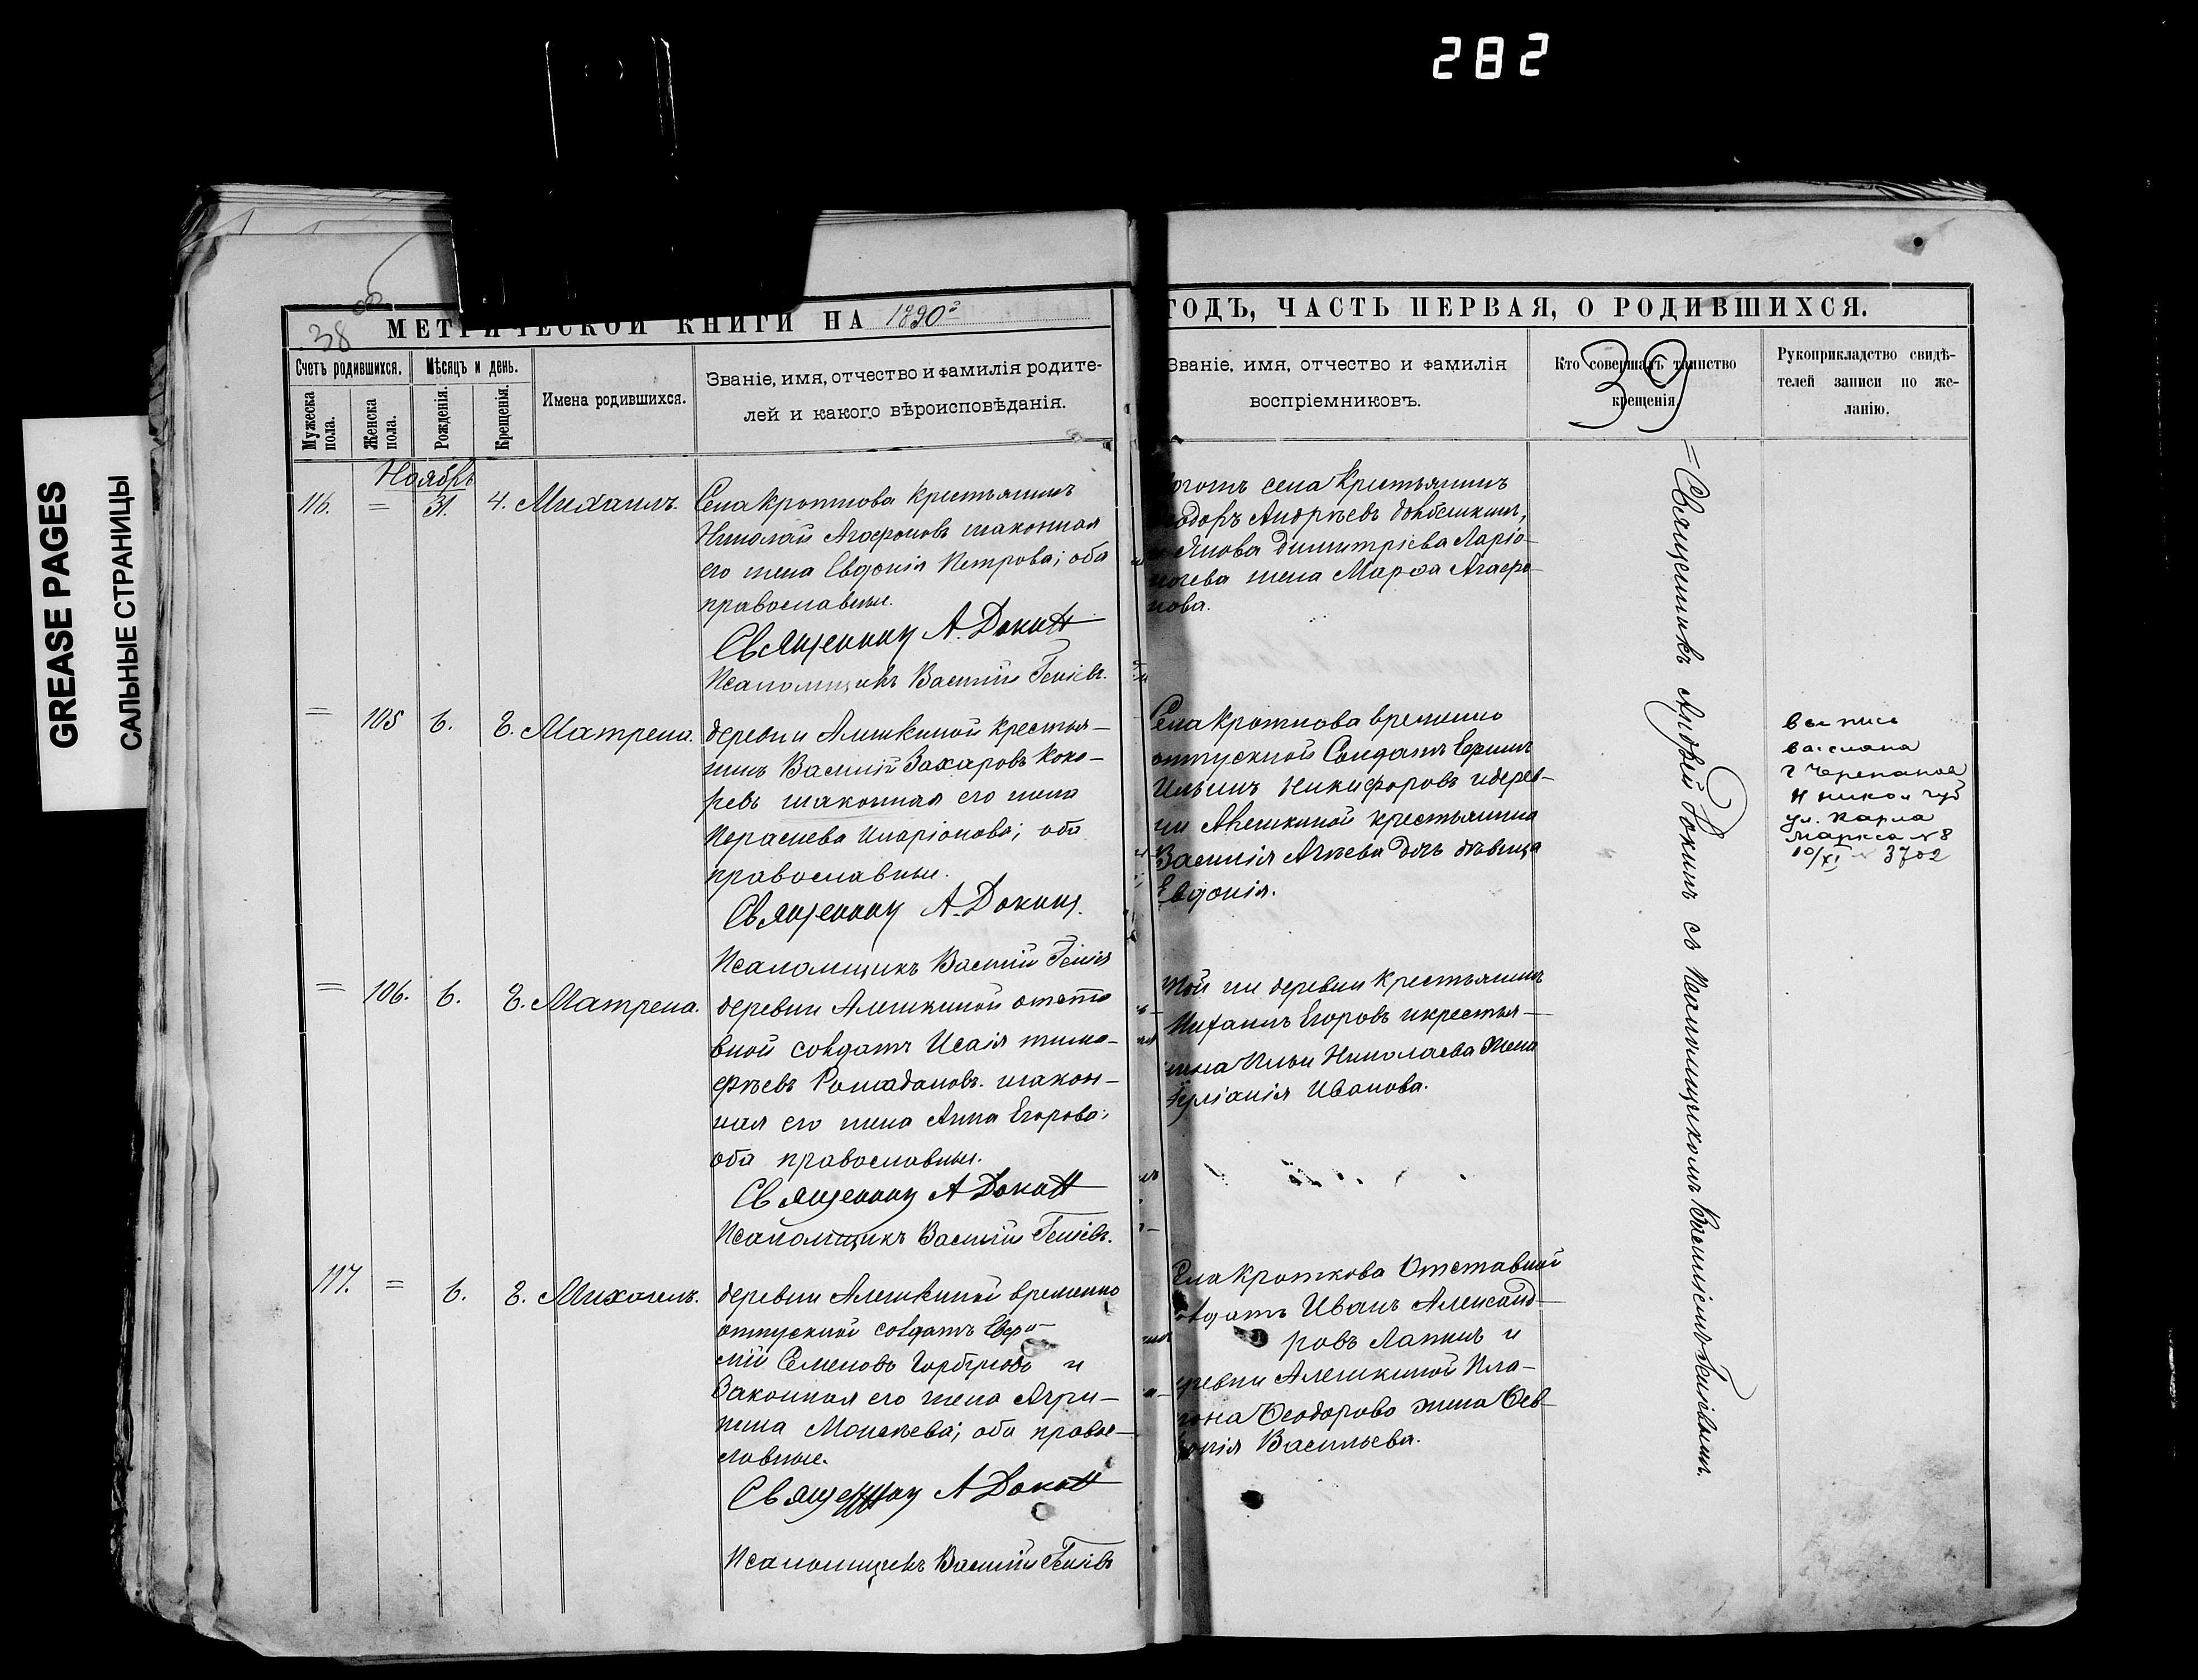 282
GREASE PAGES
САЛЬНЫЕ СТРАНИЦЫ
38 об
МЕТРИЧЕСКОЙ КНИГИ НА 1890й
ГОДЪ, ЧАСТЬ ПЕРВАЯ, О РОДИВШИХСЯ.
39
Счетъ родившихся.
Мужеска пола.
Женска пола.
Мѣсяцъ и день.
Рожденія.
Крещенія.
Имена родившихся.
Званіе, имя, отчество и фамилія родите-
лей и какого вѣроисповѣданія.
Званіе, имя, отчество и фамилія
воспріемниковъ.
Кто совершалъ таинство
крещенія
Рукоприкладство свидѣ-
телей записи по же-
ланію.
Ноябрь
116. = 31. 4. Михаилъ.
Села Кроткова крестьянинъ
Николай Агафоновъ и законная
его жена Евдокія Петрова; оба
православные.
Священник А. Докин
Псаломщикъ Василій
села крестьянинъ
Андреевъ
Димитріева Ларіо-
нова жена Марѳа Агафо-
нова.
= 105 6. 8. Матрена.
деревни Алешкиной крестья-
нинъ Василій Захаровъ Коко-
ревъ и законная его жена
Параскева Иларіонова; оба
православные.
Священник А. Докин.
Псаломщикъ Василій
Села Кроткова временно
отпускной Солдатъ
Ильинъ Никифоровъ и дерев-
ни Алешкиной крестьянина
Василія дочь дѣвица
Евдокія.
выпись
выслана
г Черепанов
Н никол губ
ул. Карла
Маркса № 8
10/XI 3702
= 106. 6. 8. Матрена.
деревни Алешкиной отста
вной солдатъ Исаія Тимо-
феевъ Рамадановъ и закон-
ная его жена Анна Егорова;
оба православные.
Священник А Докин
Псаломщикъ Василій
Той же деревни крестьянинъ
Михаилъ Егоровъ и крестья-
нина Ильи Николаева жена
Іуліанія Иванова.
117. = 6. 8. Михаилъ.
деревни Алешкиной временно
отпускной солдатъ Евфи-
мій Семеновъ Горбуновъ и
Законная его жена Агри-
пина Моисеева; оба право-
славные.
Священник А Докин
Псаломщикъ Василій
Села Кроткова Отставной
солдатъ Иванъ Александ-
ровъ Лапинъ и
деревни Алешкиной Пла-
тона Ѳеодорова жена Ѳев-
ронія Васильева.
= Священникъ Докинъ съ Псаломщикомъ Василіемъ